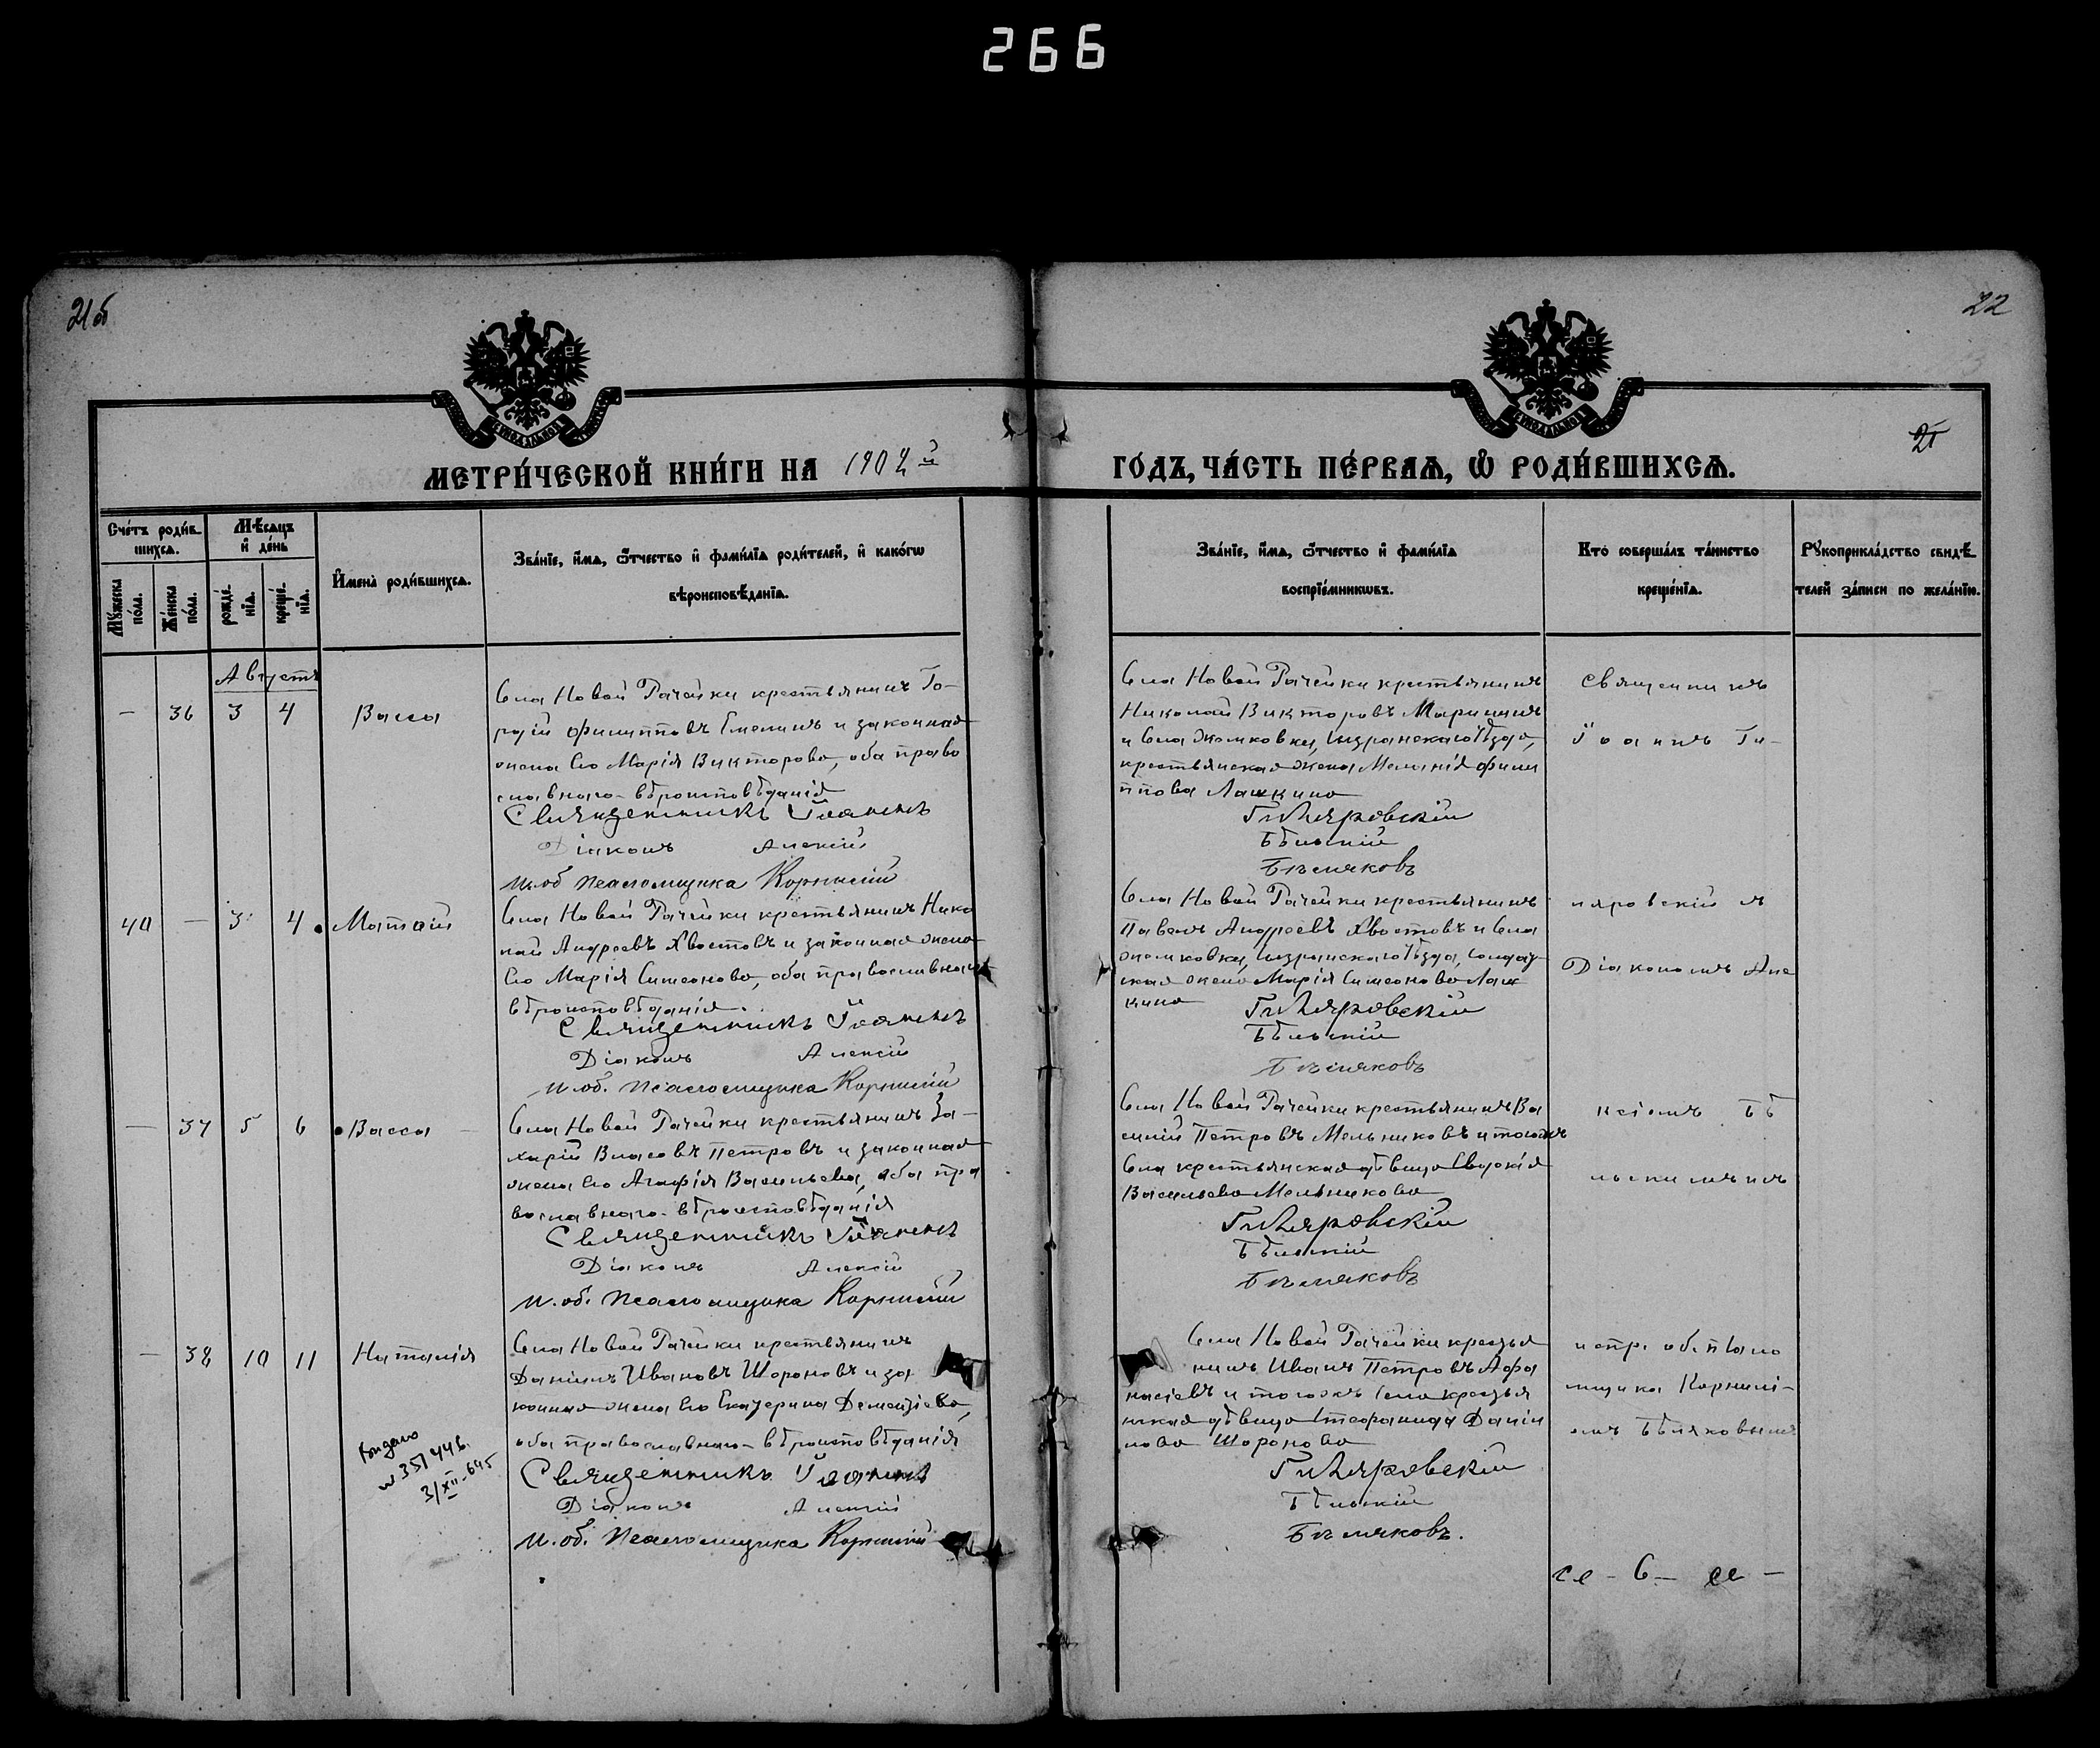 266
21об
22
21
МЕТРИ́ЧЕСКОЙ КНИ́ГИ НА 1902 й
ГО́ДЪ, ЧА́СТЬ ПЕ́РВАѦ, Ѡ҆ РОДИ́ВШИХСѦ.
Сче́тъ роди́в-
шихсѧ.
Мѣ́сѧцъ
и҆ де́нь
Мꙋ́жеска
по́ла.
Же́нска
по́ла.
рожде́-
нїѧ.
креще́-
нїѧ.
И҆мена̀ роди́вшихсѧ.
Зва́нїе, и҆́мѧ, ѻ҆́тчество и҆ фами́лїѧ роди́телей, и҆ како́гѡ
вѣроисповѣ́данїѧ.
Зва́нїе, и҆́мѧ, ѻ҆́тчество и҆ фами́лїѧ
воспрїе́мникѡвъ.
Кто̀ соверша́лъ та́инство
креще́нїѧ.
Рꙋкоприкла́дство свидѣ́-
телей за́писи по жела́нїю.
Августъ
— 36 3 4 Васса
Села Новой Рачейки крестьянинъ Ге-
ргій Филипповъ Емелинъ и законная
жена его Марія Викторова, оба право
славнаго вѣроисповѣданія
Священникъ Іоаннъ
Діаконъ Алексій
И. об псаломщика Корнилій
Села Новой Рачейки крестьянинъ
Николай Викторовъ Марининъ
и села Жемковки, Сызранскаго Уѣзда,
крестьянская жена Меланія Фили
ппова Лашкина
Гиляровскій
Бѣльскій
Бѣляковъ
40 — 3 4 Матѳій
Села Новой Рачейки крестьянинъ Нико
лай Андреевъ Хвостовъ и законная жена
его Марія Симеонова, оба православнаго
вѣроисповѣданія.
Священникъ Іоаннъ
Діаконъ Алексій
И. об. псаломщика Корнилій
Села Новой Рачейки крестьянинъ
Павелъ Андреевъ Хвостовъ и села
Жемковки, Сызранскаго Уѣзда, солдат
ская жена Марія Симеонова Лаш
кина
Гиляровскій
Бѣльскій
Бѣляковъ
— 37 5 6 Васса
Села Новой Рачейки крестьянинъ За-
харій Власовъ Петровъ и законная
жена его Агафія Васильева, оба пра
вославнаго вѣроисповѣданія
Священникъ Іоаннъ
Діаконъ Алексій
И. об. псаломщика Корнилій
Села Новой Рачейки крестьянинъ Ва
силій Петровъ Мельниковъ и тогожъ
села крестьянская дѣвица Евдокія
Васильева Мельникова
Гиляровскій
Бѣльскій
Бѣляковъ
— 38 10 11 Наталія
Села Новой Рачейки крестьянинъ
Даніилъ Ивановъ Шороновъ и за
конная жена его Екатерина Дементіева,
оба православнаго вѣроисповѣданія
Священникъ Іоаннъ
Діаконъ Алексій
И. об. псаломщика Корнилій
Села Новой Рачейки крестья
нинъ Иванъ Петровъ Афа
насіевъ и тогожъ села крестья
нская дѣвица Стефанида Даніи
лова Шоронова
Гиляровскій
Бѣльскій
Бѣляковъ.
Священникъ
Іоаннъ Ги-
ляровскій съ
Діакономъ Але
ксіемъ Бѣ
льскимъ и съ
испр. об. псало
мщика Корнилі-
емъ Бѣляковымъ